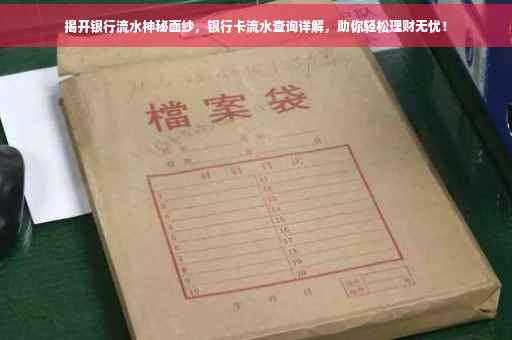 揭开银行流水神秘面纱，银行卡流水查询详解，助你轻松理财无忧！
檔案袋
材料目次
1 11
2 12
3 13
4 14
5 15
6 16
7 17
8 18
9 19
10 20
年 月 日